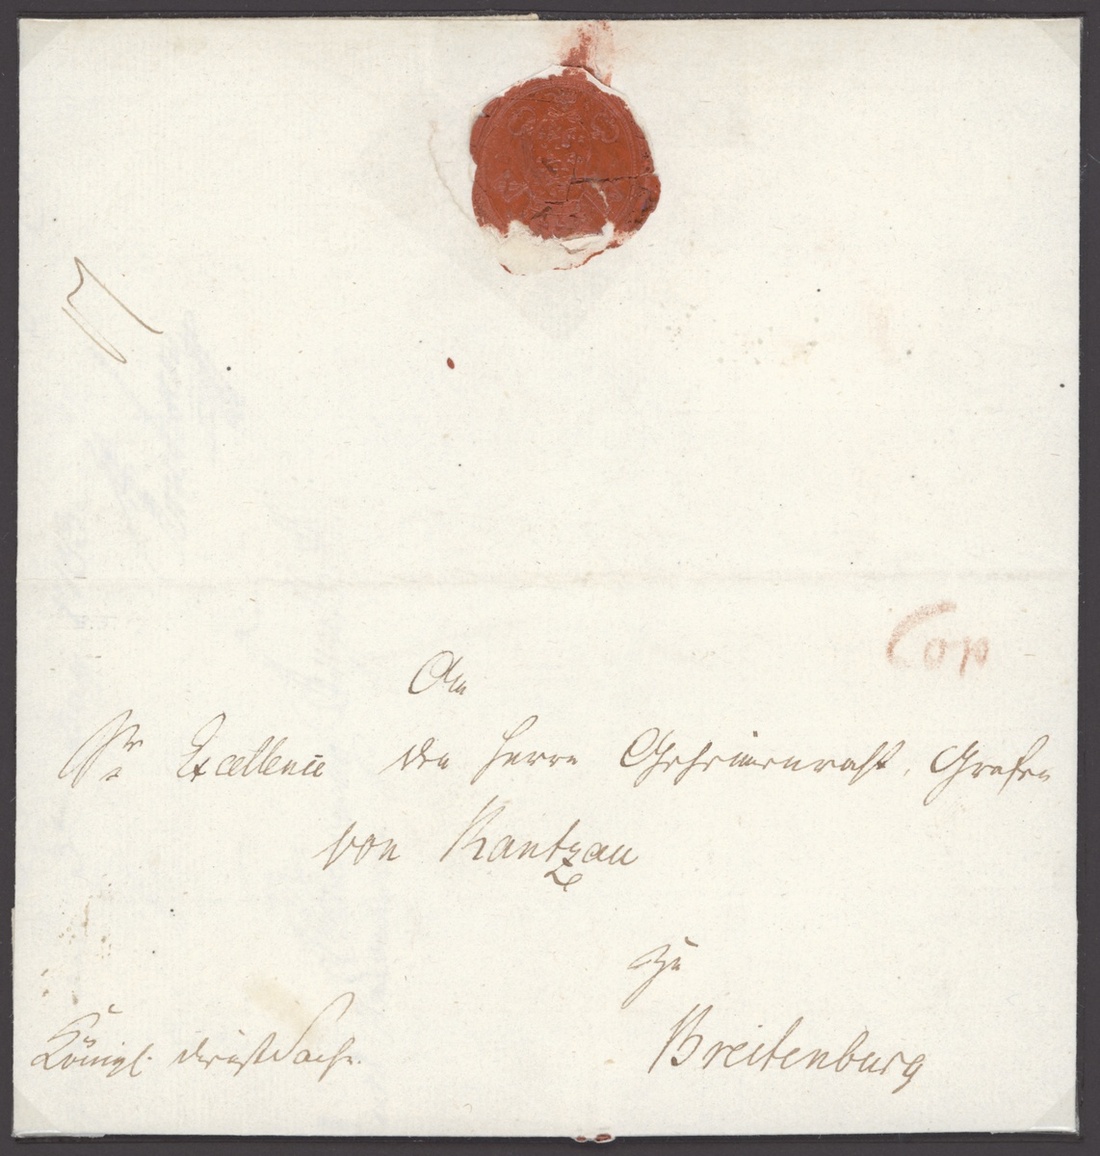 Cop
An
Sr Excellence den Herrn Geheimenrath, Grafen
von Rantzau
zu
Breitenburg
Königl. Dienst Sache.